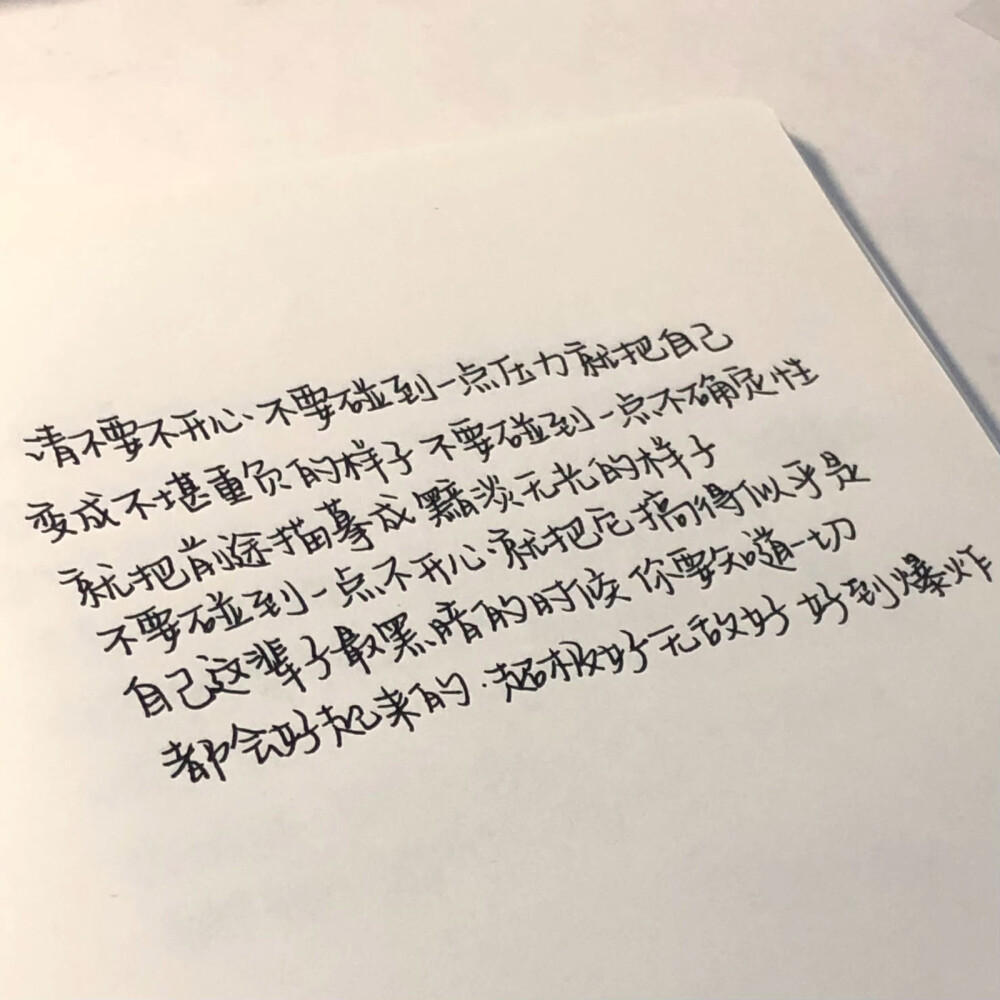 请不要不开心 不要碰到一点压力就把自己
变成不堪重负的样子 不要碰到一点不确定性
就把前途描摹成黯淡无光的样子
不要碰到一点不开心就把它搞得似乎是
自己这辈子最黑暗的时候 你要知道一切
都会好起来的.超极好无敌好 好到爆炸